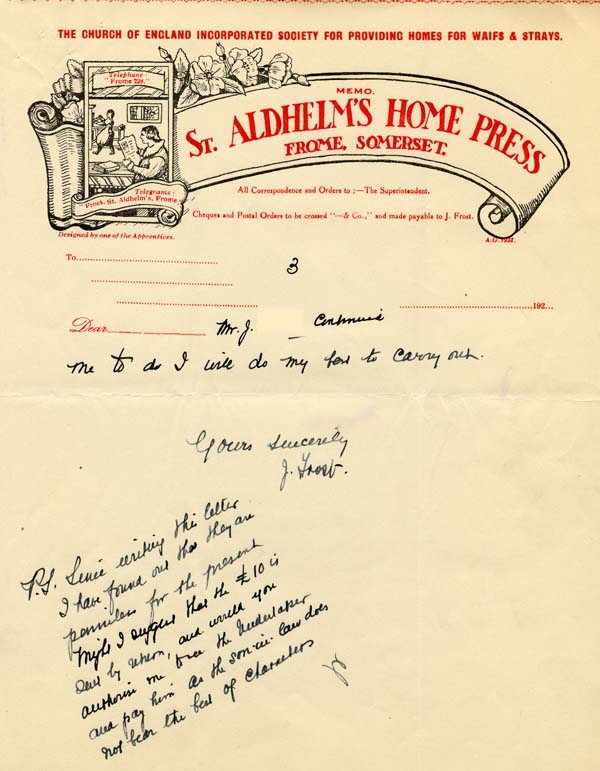 THE CHURCH OF ENGLAND INCORPORATED SOCIETY FOR PROVIDING HOMES FOR WAIFS & STRAYS.
MEMO.
ST. ALDHELM'S HOME PRESS
FROME, SOMERSET.
Telephone:
"Frome 238."
Telegrams:
"Frost, St. Aldhelm's, Frome"
Designed by one of the Apprentices.
All Correspondence and Orders to ;—The Superintendent.
Cheques and Postal Orders to be crossed "—& Co.," and made payable to J. Frost.
To
3
192...
Dear Mr. J. Continued
me to do I will do my best to carry out.
Yours sincerely
J. Frost.
P.S. Since writing this letter
I have found out that they are
penniless for the present
Might I suggest that the £10 is
sent by return, and would you
authorise me to see the Undertaker
and pay him as the son-in-law does
not bear the best of characters